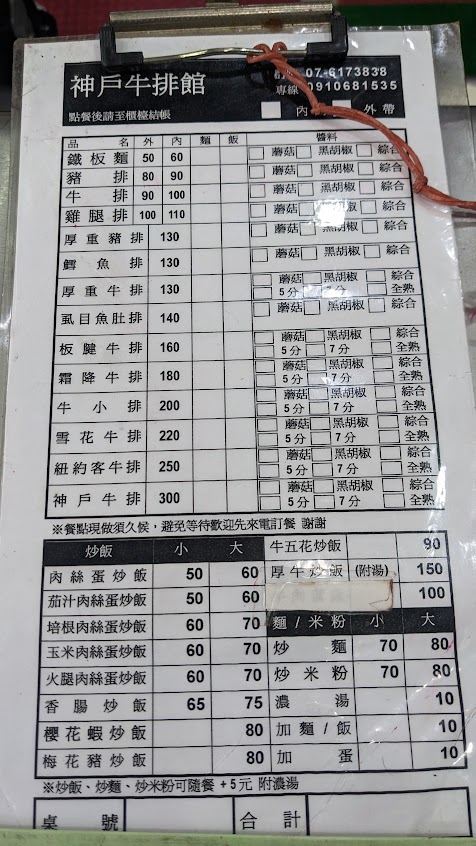 神戶牛排館
07-6173838
專線 0910681535
點餐後請至櫃檯結帳
內 外帶
品名 外 內 麵 飯 醬料
鐵板麵 50 60 蘑菇 黑胡椒 綜合
豬排 80 90 蘑菇 黑胡椒 綜合
牛排 90 100 蘑菇 黑胡椒 綜合
雞腿排 100 110 蘑菇 黑胡椒 綜合
厚重豬排 130 蘑菇 黑胡椒 綜合
鱈魚排 130 蘑菇 黑胡椒 綜合
厚重牛排 130 蘑菇 黑胡椒 綜合
5分 7分 全熟
虱目魚肚排 140 蘑菇 黑胡椒 綜合
板腱牛排 160 蘑菇 黑胡椒 綜合
5分 7分 全熟
霜降牛排 180 蘑菇 黑胡椒 綜合
5分 7分 全熟
牛小排 200 蘑菇 黑胡椒 綜合
5分 7分 全熟
雪花牛排 220 蘑菇 黑胡椒 綜合
5分 7分 全熟
紐約客牛排 250 蘑菇 黑胡椒 綜合
5分 7分 全熟
神戶牛排 300 蘑菇 黑胡椒 綜合
5分 7分 全熟
※餐點現做須久候，避免等待歡迎先來電訂餐 謝謝
炒飯 小 大
肉絲蛋炒飯 50 60
茄汁肉絲蛋炒飯 50 60
培根肉絲蛋炒飯 60 70
玉米肉絲蛋炒飯 60 70
火腿肉絲蛋炒飯 60 70
香腸炒飯 65 75
櫻花蝦炒飯 80
梅花豬炒飯 80
牛五花炒飯 90
厚牛炒飯 (附湯) 150
100
麵/米粉 小 大
炒麵 70 80
炒米粉 70 80
濃湯 10
加麵/飯 10
加蛋 10
※炒飯、炒麵、炒米粉可隨餐+5元 附濃湯
桌號 合計